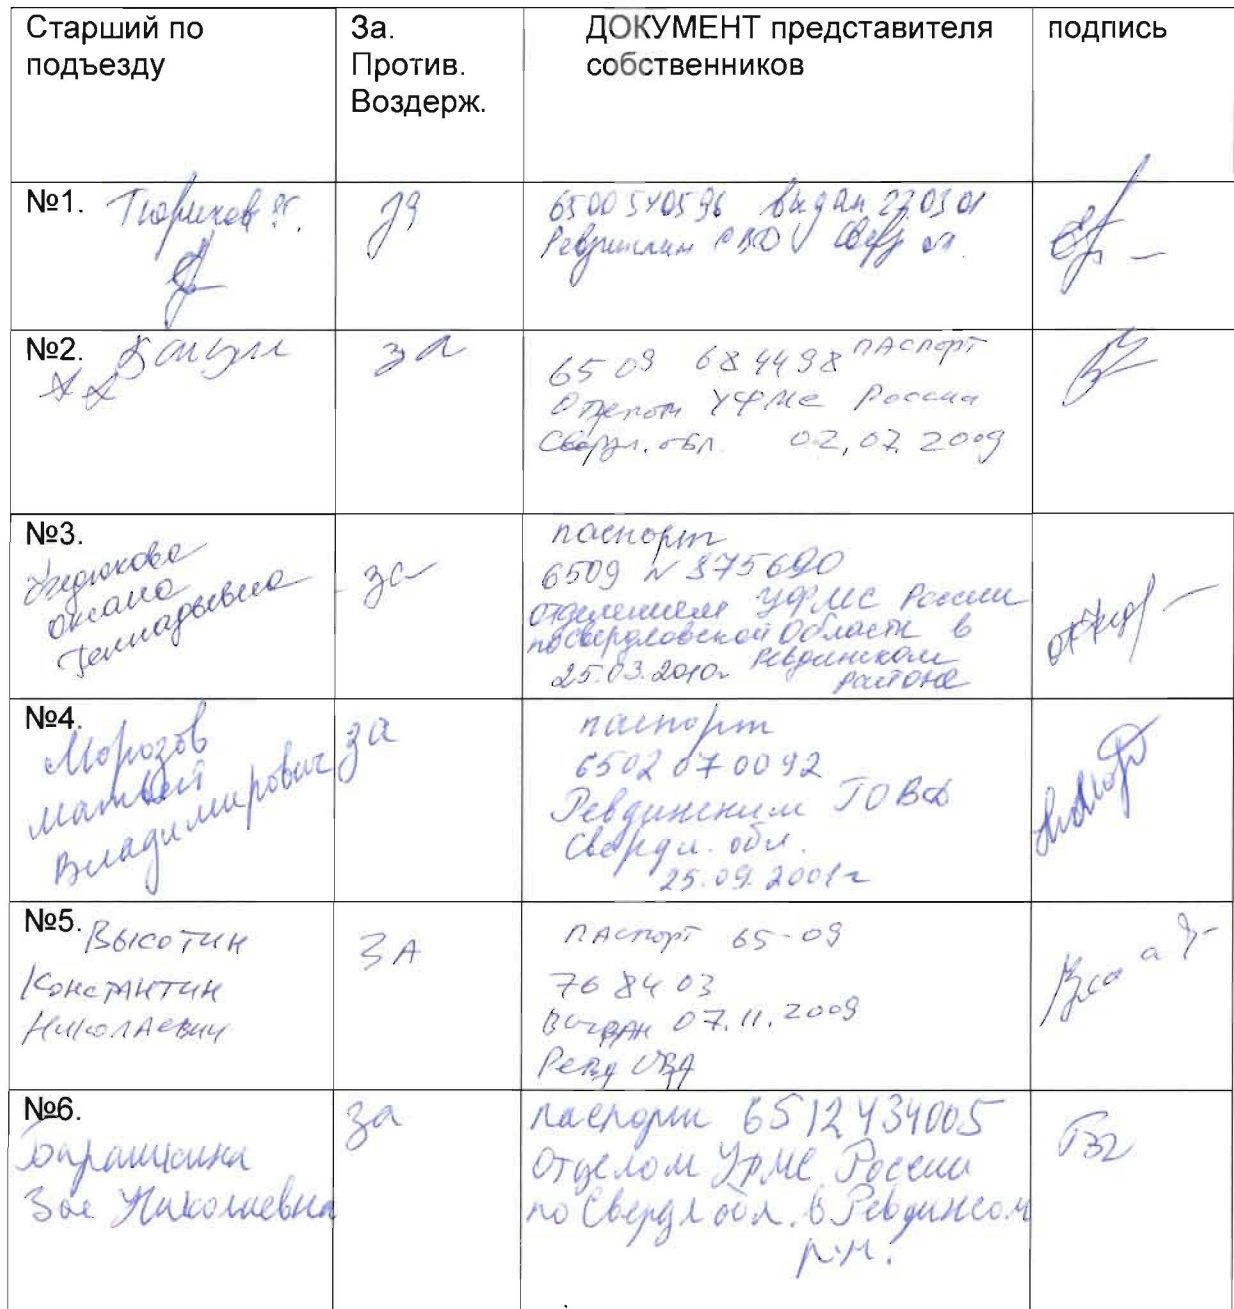 Старший по
подъезду
За.
Против.
Воздерж.
ДОКУМЕНТ представителя
собственников
подпись
№1. Тюриков
за
6500 540596 выдан 27.03.01
Ревдинским
№2.
за
6509 684498 паспорт
Отделом УФМС России
Свердл. обл. 02.07.2009
№3.
Оксана
Геннадьевна
за
паспорт
6509 N 875690
отделением УФМС России
по Свердловской области в
25.03.2010г Ревдинском
районе
№4.
Морозов
Матвей
Владимирович
за
паспорт
6502 070092
Ревдинским ГОВД
Свердл. обл.
25.09.2001г
№5. Высотин
Константин
Николаевич
ЗА
паспорт 65-09
768403
Выдан 07.11.2009
Ревд
№6.
Барашкина
Зоя Николаевна
за
паспорт 6512 434005
Отделом УФМС России
по Свердл обл. в Ревдинском
р-н.